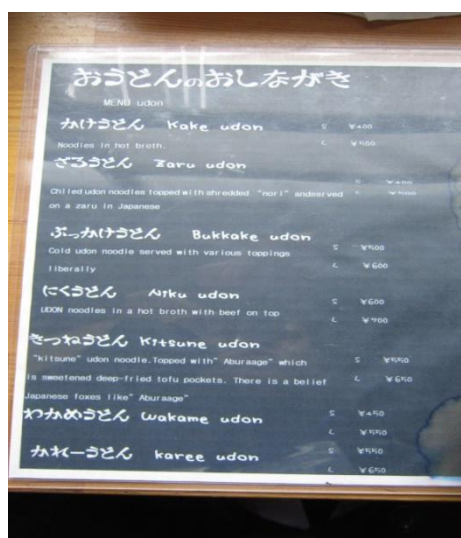 おうどんのおしながき
MENU udon
かけうどん Kake udon S ¥400
Noodles in hot broth. L ¥500
ざるうどん Zaru udon
S ¥400
Chiled udon noodles topped with shredded “nori” andserved L ¥500
on a zaru in Japanese
ぶっかけうどん Bukkake udon
Cold udon noodle served with various toppings S ¥500
liberally L ¥600
にくうどん Niku udon S ¥600
UDON noodles in a hot broth with beef on top L ¥700
きつねうどん Kitsune udon
“kitsune” udon noodle.Topped with” Aburaage” which S ¥550
is sweetened deep-fried tofu pockets. There is a belief L ¥650
Japanese foxes like” Aburaage”
わかめうどん Wakame udon S ¥450
L ¥550
かれーうどん karee udon S ¥550
L ¥650